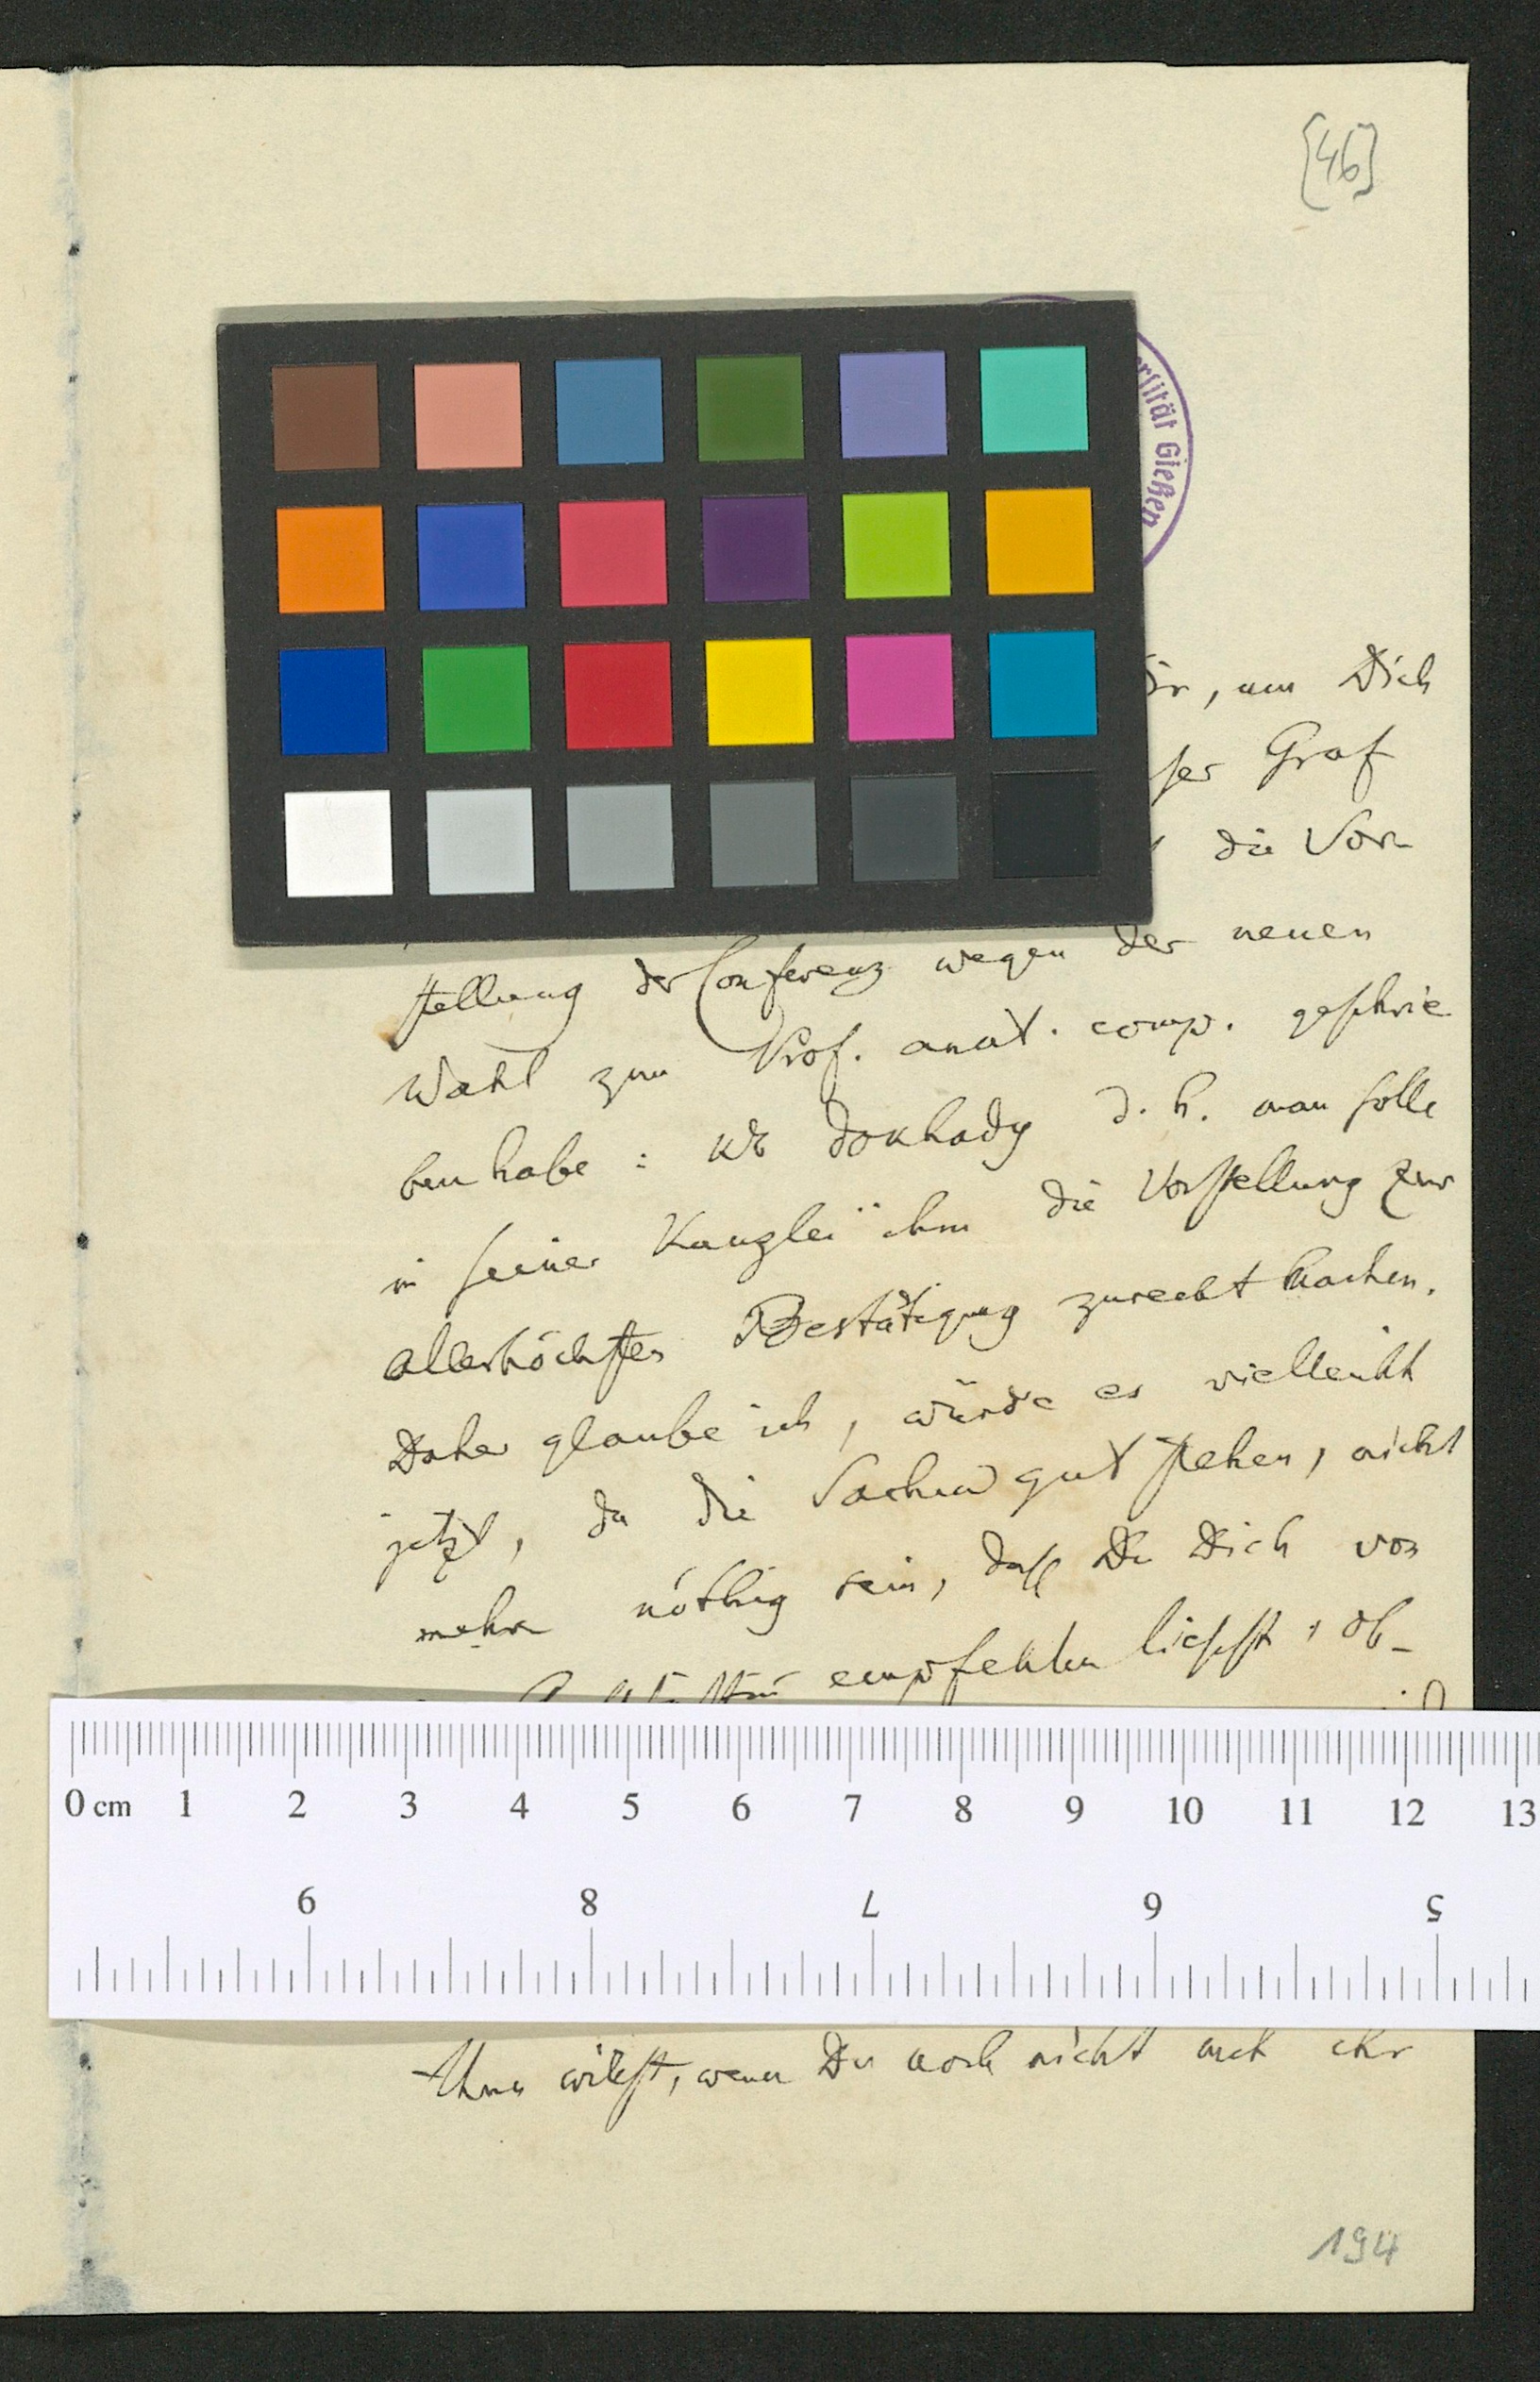 [46]
ersität Gießen
Dir, um Dich
ser Graf
die Vor-
stellung der Conferenz wegen der neuen
Wahl zum Prof. anat. comp. geschrie
ben habe: къ докладу d. h. man solle
in seiner Kanzlei ihm die Vorstellung zur
allerhöchsten Bestätigung zurecht machen.
Daher glaube ich, würde es vielleicht
jetzt, da die Sachen gut stehen, nicht
mehr nöthig sein, dass Du Dich von
empfehlen liessest, ob-
0 cm 1 2 3 4 5 6 7 8 9 10 11 12 13
9 8 7 6 5
thun willst, wenn Du noch nicht mit ihr
194